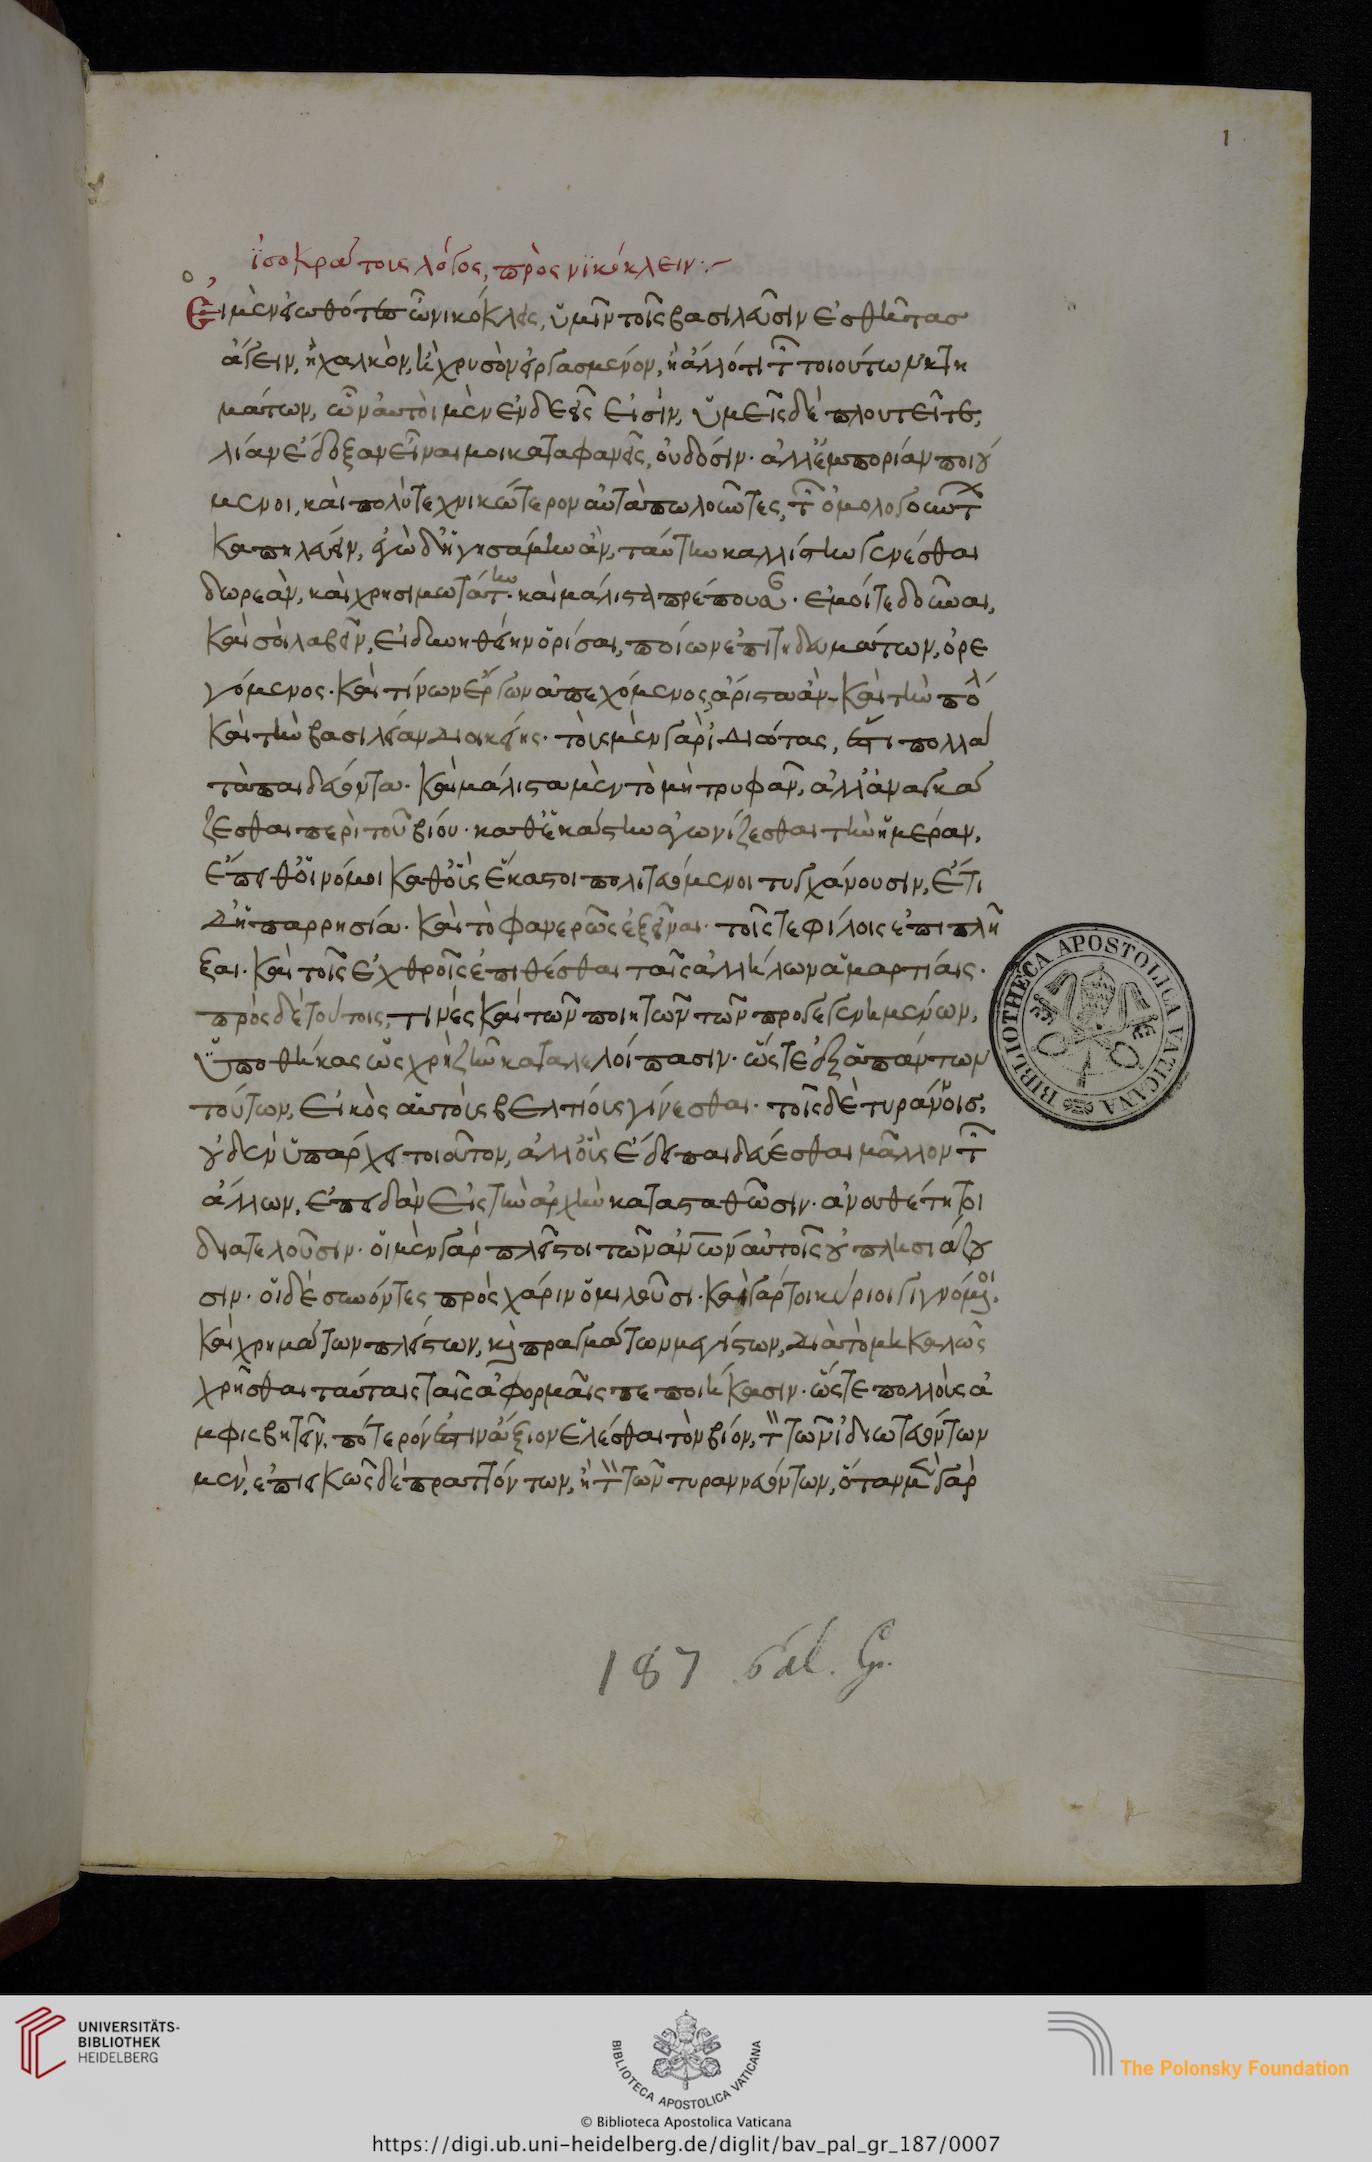 1
ἰσοκράτους λόγος, πρὸς νικόκλειν:-
Οἱ μὲν εἰωθότες ὦ νικόκλεις, ὑμῖν τοῖς βασιλεῦσιν ἐσθῆτας
ἄγειν, ἢ χαλκὸν, ἢ χρυσὸν εἰργασμένον, ἢ ἄλλό τι τῶν τοιούτων κτη
μάτων, ὧν αὐτοὶ μὲν ἐνδεεῖς εἰσὶν, ὑμεῖς δὲ πλουτεῖτε,
λίαν ἔδοξαν εἶναί μοι καταφανεῖς, οὐ δόσιν. ἀλλ' ἐμπορίαν ποιού
μενοι, καὶ πολὺ τεχνικώτερον αὐτὰ πωλοῦντες, τῶν ὁμολογούντων
καπηλεύειν, ἐγὼ δ' ἡγησάμην ἂν, ταύτην καλλίστην γενέσθαι
δωρεὰν, καὶ χρησιμωτάτην. καὶ μάλιστα πρέπουσαν. ἐμοί τε δοῦναι,
καὶ σοὶ λαβεῖν, εἰ δυνηθείην ὁρίσαι, ποίων ἐπιτηδευμάτων, ὀρε
γόμενος. καὶ τίνων ἔργων ἀπεχόμενος, ἄριστα ἂν. καὶ τὴν πόλ
καὶ τὴν βασιλείαν διοικείης. τοὺς μὲν γὰρ ἰδιώτας, ἐστι πολλὰ
τὰ παιδεύοντα. καὶ μάλιστα μὲν τὸ μὴ τρυφᾶν, ἀλλ' ἀναγκά
ζεσθαι περὶ τοῦ βίου. καθ' ἑκάστην ἀγωνίζεσθαι τὴν ἡμέραν,
ἔπειθ' οἱ νόμοι καθ' οὓς ἕκαστοι πολιτευόμενοι τυγχάνουσιν, ἔτι
δ' ἡ παρρησία. καὶ τὸ φανερῶς ἐξεῖναι. τοῖς τε φίλοις ἐπιπλῆ
ξαι. καὶ τοῖς ἐχθροῖς ἐπιθέσθαι ταῖς ἀλλήλων ἁμαρτίαις.
πρὸς δὲ τούτοις, τινές καὶ τῶν ποιητῶν τῶν προγεγενημένων,
ὑποθήκας ὡς χρὴ ζῆν καταλελοίπασιν. ὥστε ἐξ ἁπάντων
τούτων, εἰκὸς αὐτοὺς βελτίους γίνεσθαι. τοῖς δὲ τυράννοις,
οὐδὲν ὑπάρχει τοιοῦτον, ἀλλ' οὓς ἔδει παιδεύεσθαι μᾶλλον τῶν
ἄλλων, ἐπειδὰν εἰς τὴν ἀρχὴν κατασταθῶσιν. ἀνουθέτητοι
διατελοῦσιν. οἱ μὲν γὰρ πλεῖστοι τῶν ἀνων αὐτοῖς οὐ πλησιάζου
σιν. οἱ δὲ συνόντες πρὸς χάριν ὁμιλοῦσι. καὶ γάρ τοι κύριοι γιγνόμενοι.
καὶ χρημάτων πλείστων, καὶ πραγμάτων μεγίστων, διὰ τὸ μὴ καλῶς
χρῆσθαι ταύταις ταῖς ἀφορμαῖς πεποιήκασιν. ὥστε πολλοὺς ἀ
μφισβητεῖν, πότερόν ἐστιν ἄξιον ἑλέσθαι τὸν βίον, τὸν τῶν ἰδιωτευόντων
μὲν, ἐπιεικῶς δὲ πραττόντων, ἢ τὸν τῶν τυραννευόντων, ὅταν μὲν γὰρ
187 Pal. Gr.
BIBLIOTHECA APOSTOLICA VATICANA
UNIVERSITÄTS-
BIBLIOTHEK
HEIDELBERG
BIBLIOTECA APOSTOLICA VATICANA
The Polonsky Foundation
© Biblioteca Apostolica Vaticana
https://digi.ub.uni-heidelberg.de/diglit/bav_pal_gr_187/0007